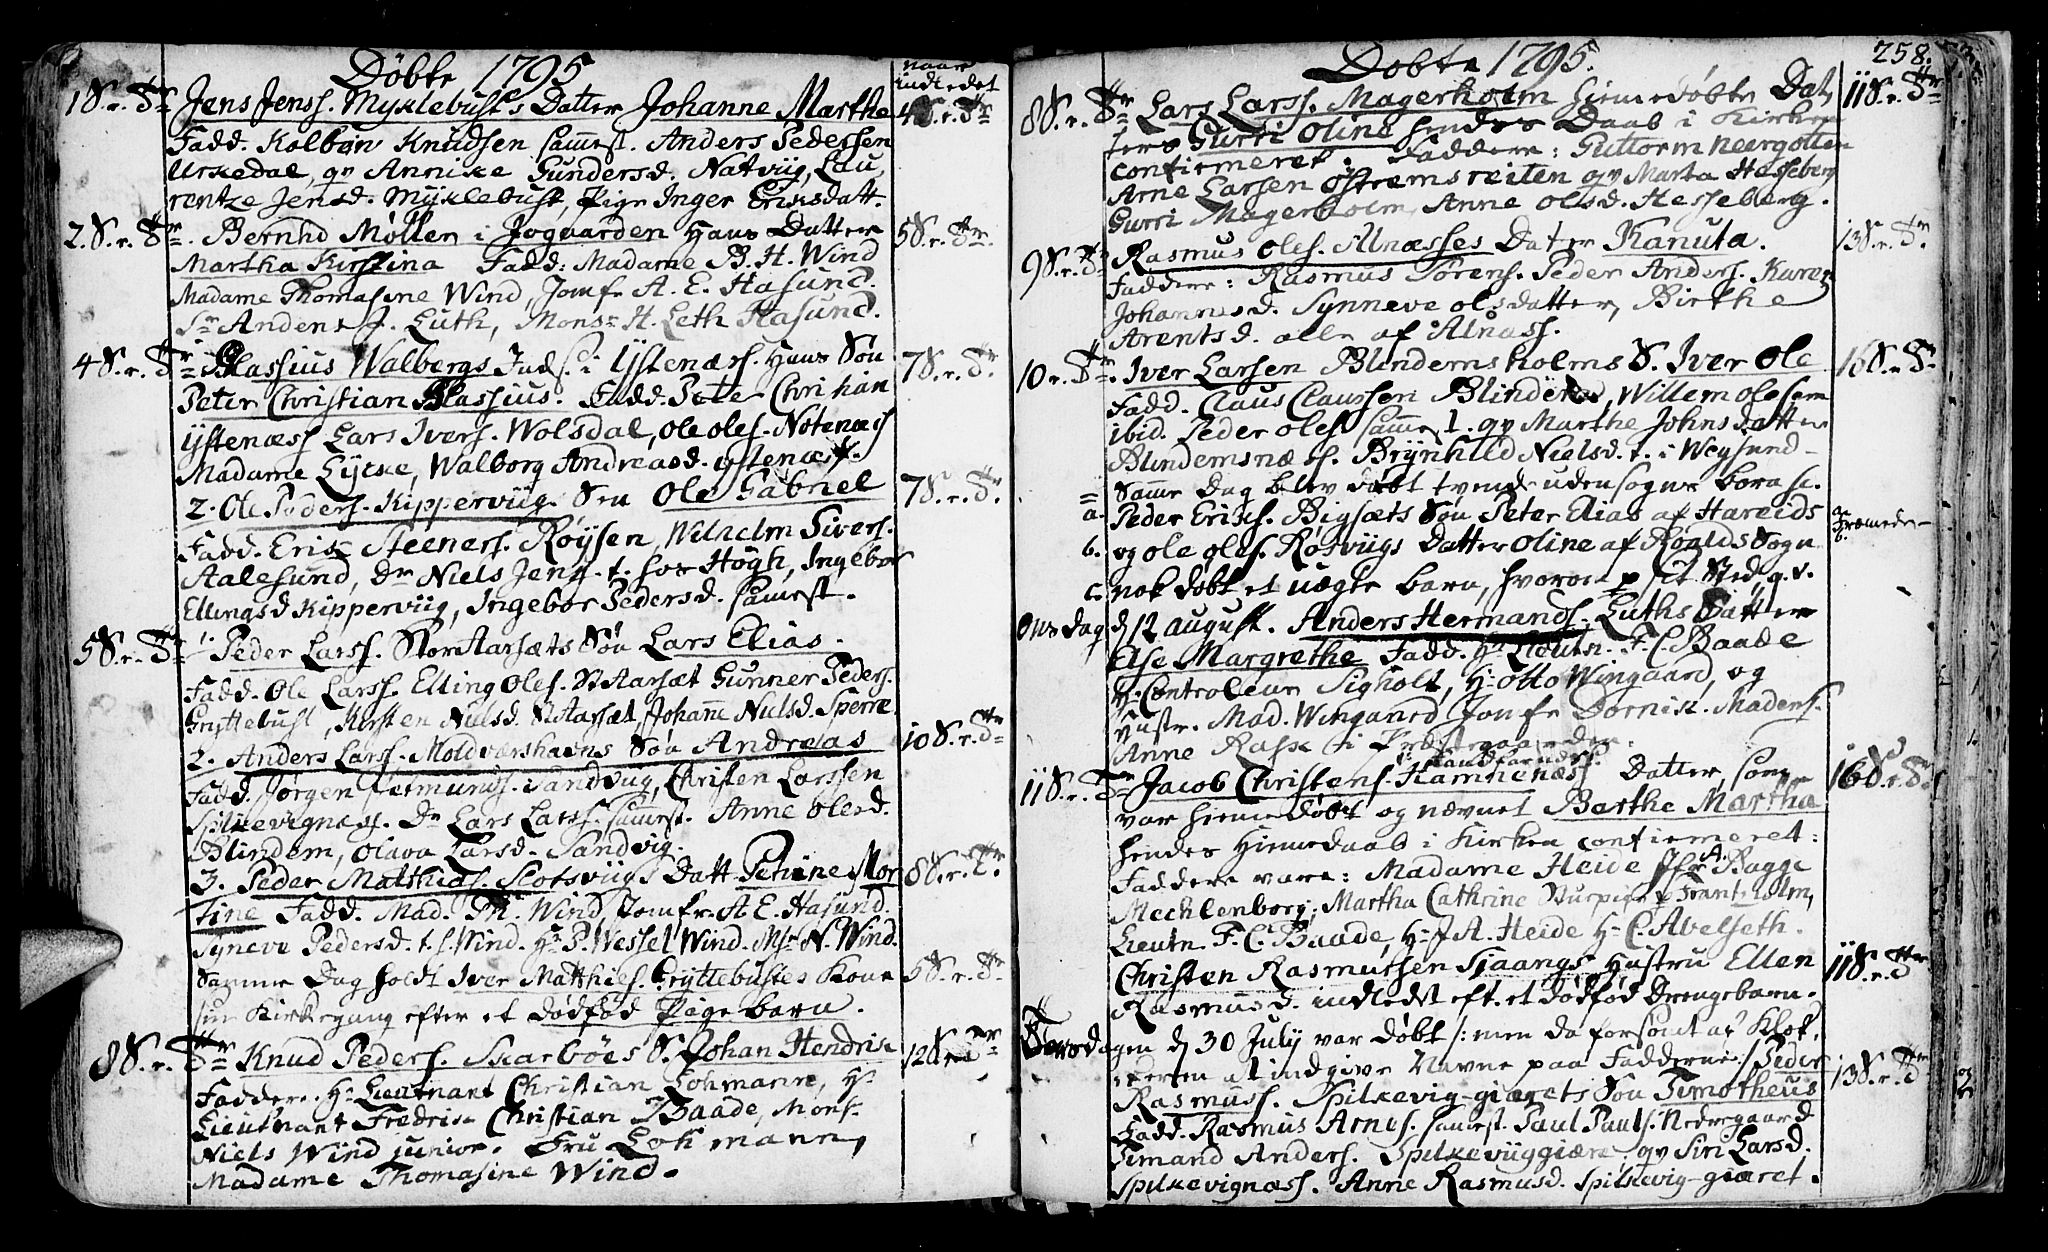 Döbte 1795
naar indledet
1 S. r. Tr. Jens Jenss. Myklebust's Datter Johanne Marthe 4 S. r. Tr.
Fadd. Kolbøn Knudsen samst. Anders Pedersen
Urkedal, qv Annike Gundersd. Natvüg, Lau,
rentze Jensd. Myklebust, Pige Inger Eriksdatt.
2. S. r. Tr. Bernhd Møller i Joguarden Hans Datter 5 S. r. Tr.
Martha Kirstina Fadd: Madame B. H. Wind
Madame Thomasine Wind, Jomfr A. E. Hasund.
Sr Anders J. Luth, Monsr H. Leth Hasund.
4 S. r. Tr. Blassius Walbergs i Ystenæss. Hans Søn 7 S. r. Tr.
Peter Christian Blassius. Fadd. Peter Christian
Ystenæss Lars Ivers. Wolsdal, Ole Oles. Notenæss
Madame Lycke, Walborg Andreasd. Ystenæss.
2. Ole Peders. Kippervüg Søn Ole Gabriel 7 S. r. Tr.
Fadd. Erik Steeners. Røysen, Wilhelm Sivers.
Aalesund, Dr Niels Jens. t. hos Høgh, Ingebor
Ellingsd Kippervüg, Ingebor Pedersd. samst.
5 S. r. Tr. 1. Peder Larss. StorAarsæts Søn Lars Elias.
Fadd. Ole Larss. Elling Oles. St Aarsæt Gunner Peders.
Gryttebust, Kirsten Nielsd. St Aarsæt, Johanne Nielsd. Sperre
2. Anders Larss. Moldværshavns Søn Andreas 10 S. r. Tr.
Fadd. Jørgen Jetmunds. Sandvüg, Christen Larssen
Spilkevignæss. Dr Lars Larss. samst. Anne Olesd.
Blindem, Olava Larsd. Sandvig.
3. Peder Matthias. Slotsvügs Datt Petrine Mor 8 S. r. Tr.
tine Fadd. Mad. Th. Wind, Jomfr. A. E. Hasund.
Syneve Pedersd. t. s. Wind. Hr P. Wessel Wind. Msr N. Wind.
Samme Dag holdt Iver Matthies. Gryttebustes Kone 5 S. r. Tr.
sin Kirkegang efter et dødfød Pigebarn.
8 S. r. Tr. Knud Peders. Skarbøes S. Johan Hendrik 12 S. r. Tr.
Faddere. Hr Lieutnant Christian Lohmann, Hr
Lieutnant Fredrik Christian Baade, Mons.
Niels Wind junior. Fru Lohmann,
Madame Thomasine Wind.
Döbte 1795. 258.
8 S. r. Tr. Lars Larss. Magerholm hiemedöbte Dat, 11 S. r. Tr.
ter Gurri Oline hendes Daab i Kirken
confirmeret. Faddere: Guttorm Neergotten
Arne Larsen Østremsreiten qv Marta Hesseberg
Gurri Magerholm, Anne Olsd. Hesseberg.
9 S. r. Tr. Rasmus Oles. Alnæsses Dater Kanuta. 13 S. r. Tr.
Faddere: Rasmus Sørens. Peder Anders. Karen
Johannesd. Synneve Olsdatter, Birthe
Arentsd. alle af Alnæss.
10 r. Tr. Iver Larsen Blindemsholms S. Iver Ole 16 S. r. Tr.
Fadd. Claus Claussen Blindem, Willem Olesen
ibid. Peder Oles samest. qv Marthe Johnsdatter
Blindemsnæss. Brynhild Nielsd. t. i Weysund
= Samme Dag blev döbt tvende udensogns børn sc.
a. Peder Eriks. Bigsæts Søn Peter Elias af Hareids a. Fremmede
b. og Ole Oles. Røsvügs Datter Oline af Roalds Sogn b.
c. nok döbt et uægte barn, hvorom p sit Sted q. v.
Onsdag d 12 August. Anders Hermands. Luths Datter
Else Margrethe Fadd. Hr Lieutn. F. C. Baade
Hr Controleur Sigholt, Hr Otto Wingaard, og
Hustr. Mad. Wingaard Jomfr Dornik. Maders.
Anne Rask i Præstegaarden.
11 S. r. Tr. Jacob Christens. Hamnenæss Datter, som 16 S. r. Tr.
var hiemedöbt og nævnet Berthe Martha
hendes Hiemedaab i Kirken confirmeret:
Faddere vare: Madame Heide Jfr A. Bagge
Mechlenborg; Martha Cathrine Frantz Holm,
Lieutn. F. C. Baade, Hr J A. Heide Hr C. Abelseth.
Christen Rasmussen Sjaangs Hustru Ellen 11 S. r. Tr.
Rasmusd. indledet eft. et dödfød Drengebarn.
Torsdagen d 30 July var döbt /: men da forsømt af Klok,
keren at indgive Navne paa Fadderne :/ Peder 13 S. r. Tr.
Rasmuss. Spilkevig-giærets Søn Timotheüs
Fadd. Rasmus Arnes. samest. Paul Pauls. Nedregaard
Timand Anders. Spilkevüggiære, qv Siri Larsd.
Spilkevignæss. Anne Rasmusd. Spilkevig-giæret.